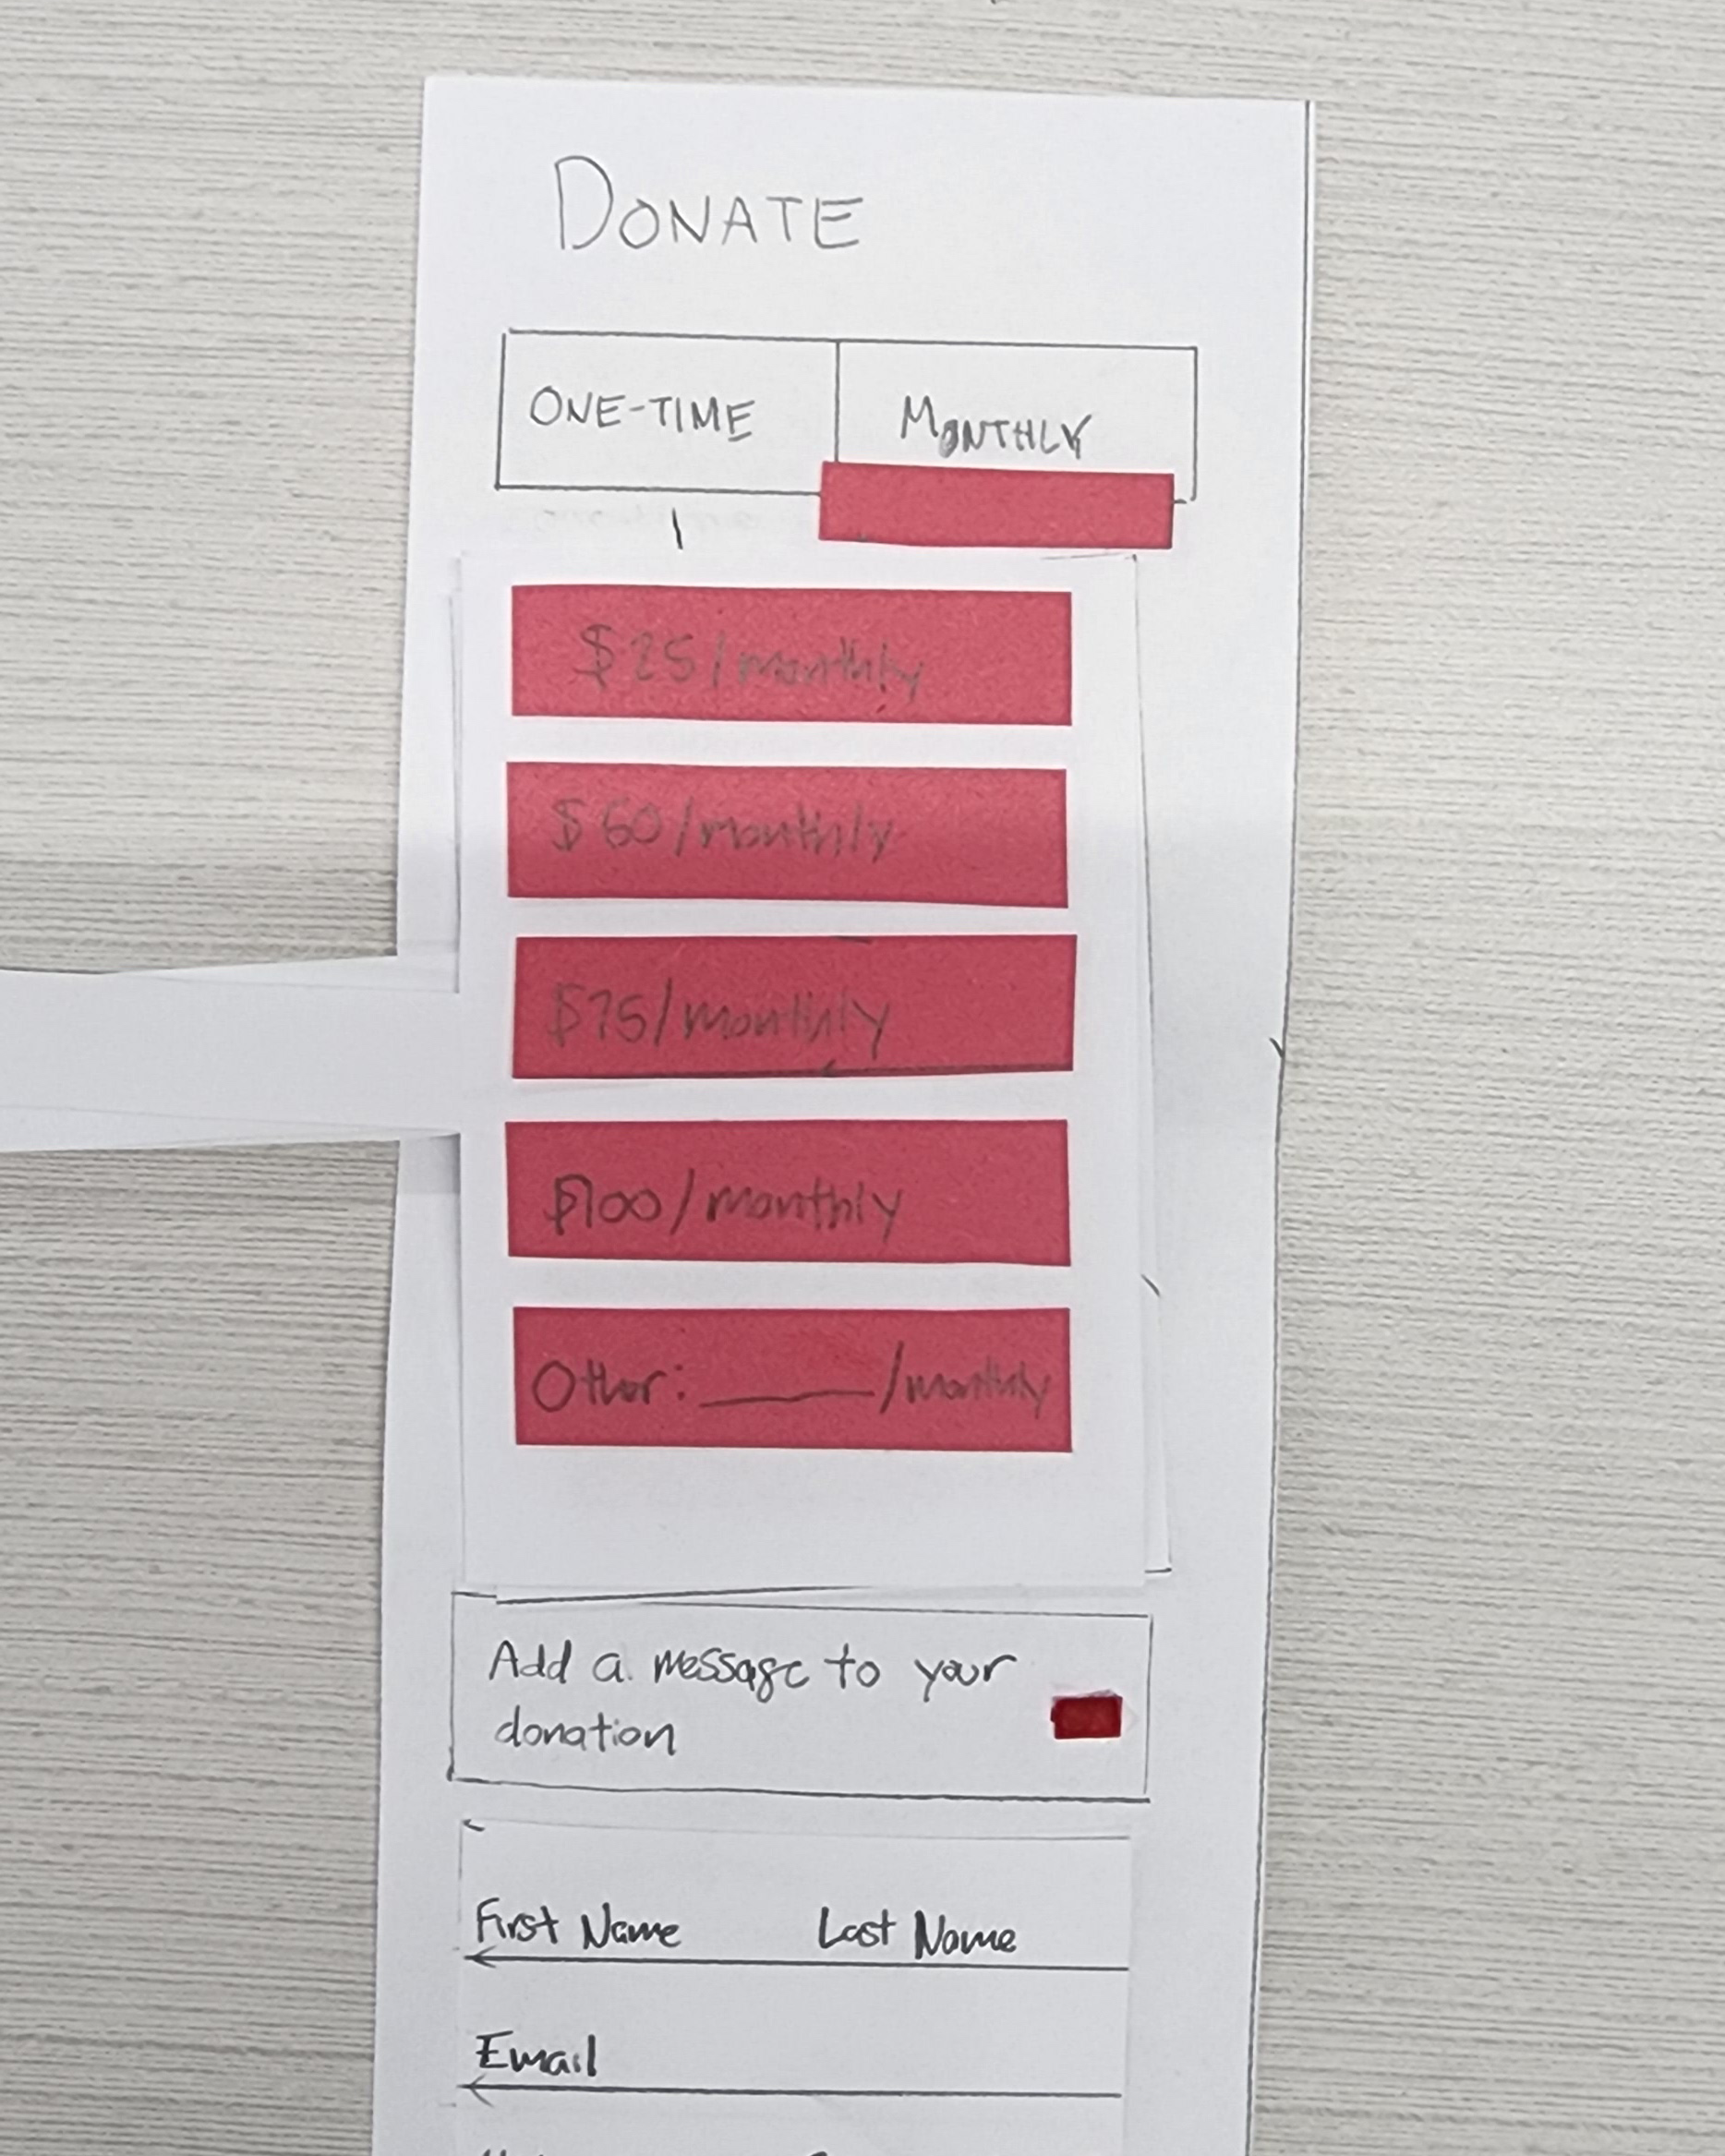 DONATE
ONE-TIME MONTHLY
$25/monthly
$60/monthly
$75/monthly
$100/monthly
Other: ______/monthly
Add a message to your
donation
First Name Last Name
Email